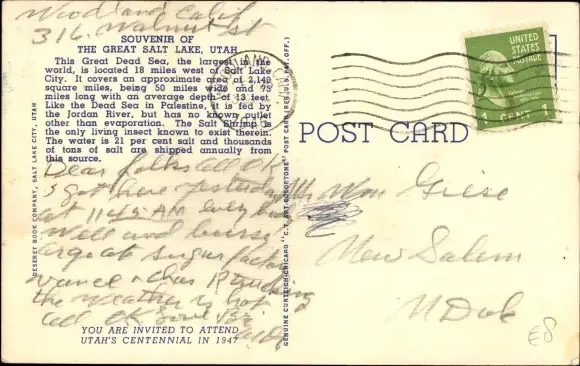 Woodland Calif
316. Walnut St
SOUVENIR OF
THE GREAT SALT LAKE, UTAH
This Great Dead Sea, the largest in the
world, is located 18 miles west of Salt Lake
City. It covers an approximate area of 2,140
square miles, being 50 miles wide and 75
miles long with an average depth of 13 feet.
Like the Dead Sea in Palestine, it is fed by
the Jordan River, but has no known outlet
other than evaporation. The Salt Shrimp is
the only living insect known to exist therein.
The water is 21 per cent salt and thousands
of tons of salt are shipped annually from
this source.
Dear folks all OK
got here yesterday
at 11:45 AM
well and
sugar
the weather is
all OK
YOU ARE INVITED TO ATTEND
UTAH'S CENTENNIAL IN 1947
DESERET BOOK COMPANY, SALT LAKE CITY, UTAH
GENUINE CURTEICH-CHICAGO "C.T. ART-COLORTONE" POST CARD (REG. U.S. PAT. OFF.)
POST CARD
UNITED
STATES
POSTAGE
1 CENT 1
Wm Giese
New Salem
N Dak
€8